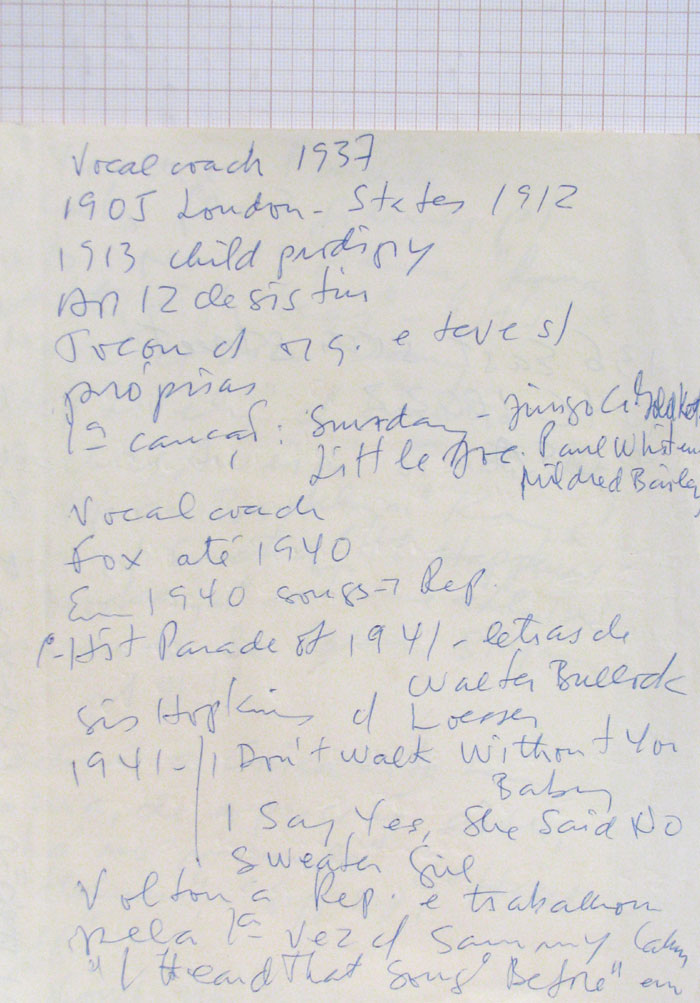 Vocal coach 1937
1905 London - States 1912
1913 child prodigy
Ao 12 desistiu
Tocou c/ org. e teve s/
próprias
1ª canção: Sunday -
Little Joe. Paul Whiteman
Mildred Bailey
Vocal coach
Fox até 1940
Em 1940 songs → Rep.
p- Hit Parade of 1941 - letras de
Walter Bullock
Sis Hopkins c/ Loesser
1941 - I Don't Walk Without You
Baby
I Say Yes, She Said No
Sweater Girl
Voltou a Rep. e trabalhou
pela 1ª vez c/ Sammy Cahn
"I Heard That Song Before" em